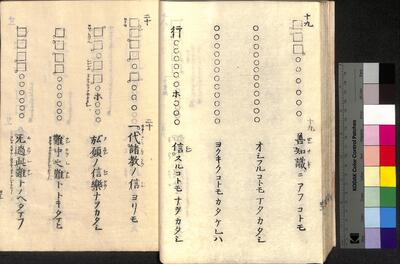 十九
十九
善知識ニアフコトモ
オシフルコトモマタカタシ
ヨクキクコトモカタケレハ
行
ホ
信スルコトモナヲカタシ
二十
二十
一代諸教ノ信ヨリモ
ホ
弘願ノ信樂ナヲカタシ
難中之難トトキタマヒ
无過此難トノヘタマフ
KODAK Color Control Patches